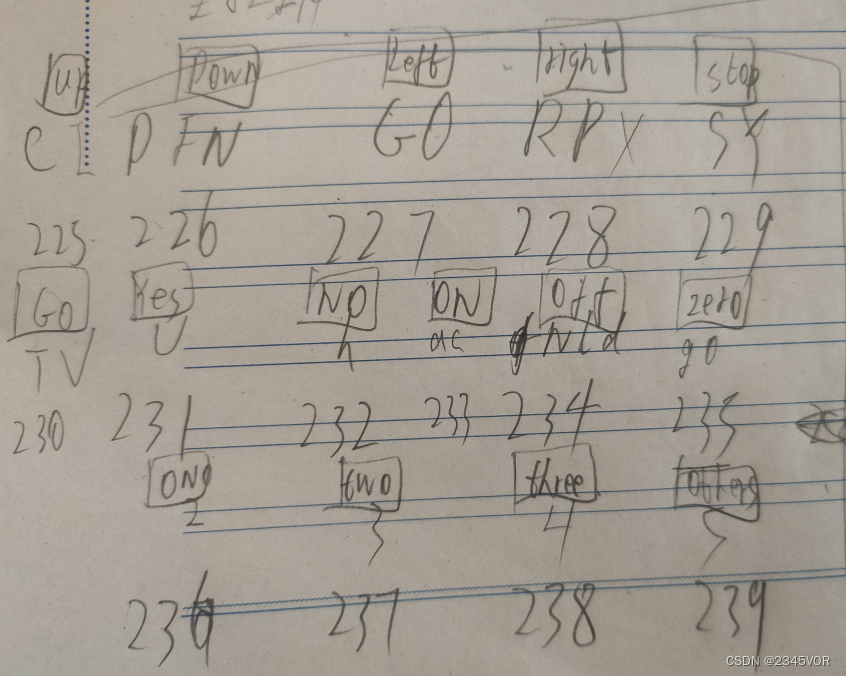 up Down Left right stop
CI DFN GO RPX SY
225 226 227 228 229
GO Yes NO ON Off zero
TV U h ac Nld go
230 231 232 233 234 235
ONe two three others
2 3 4 5
236 237 238 239
CSDN @2345VOR